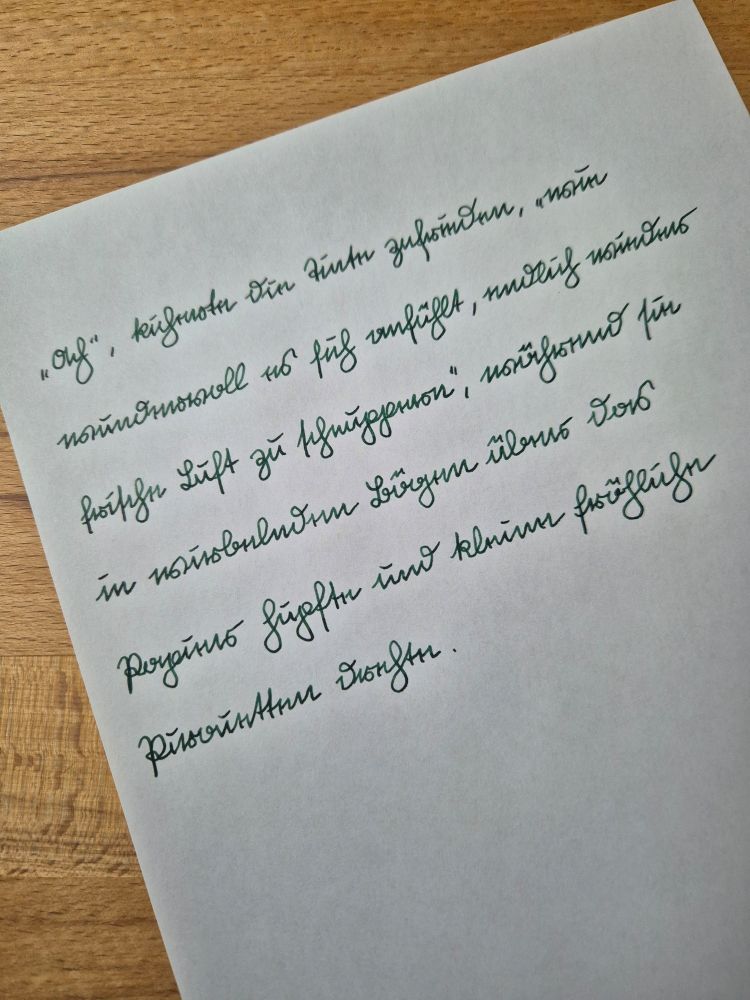 „Ach“, kicherte die Tinte zufrieden, „wie
wundervoll es sich anfühlt, endlich wieder
frische Luft zu schnuppern“, während sie
in wirbelnden Bögen über das
Papier hüpfte und kleine fröhliche
Pirouetten drehte.